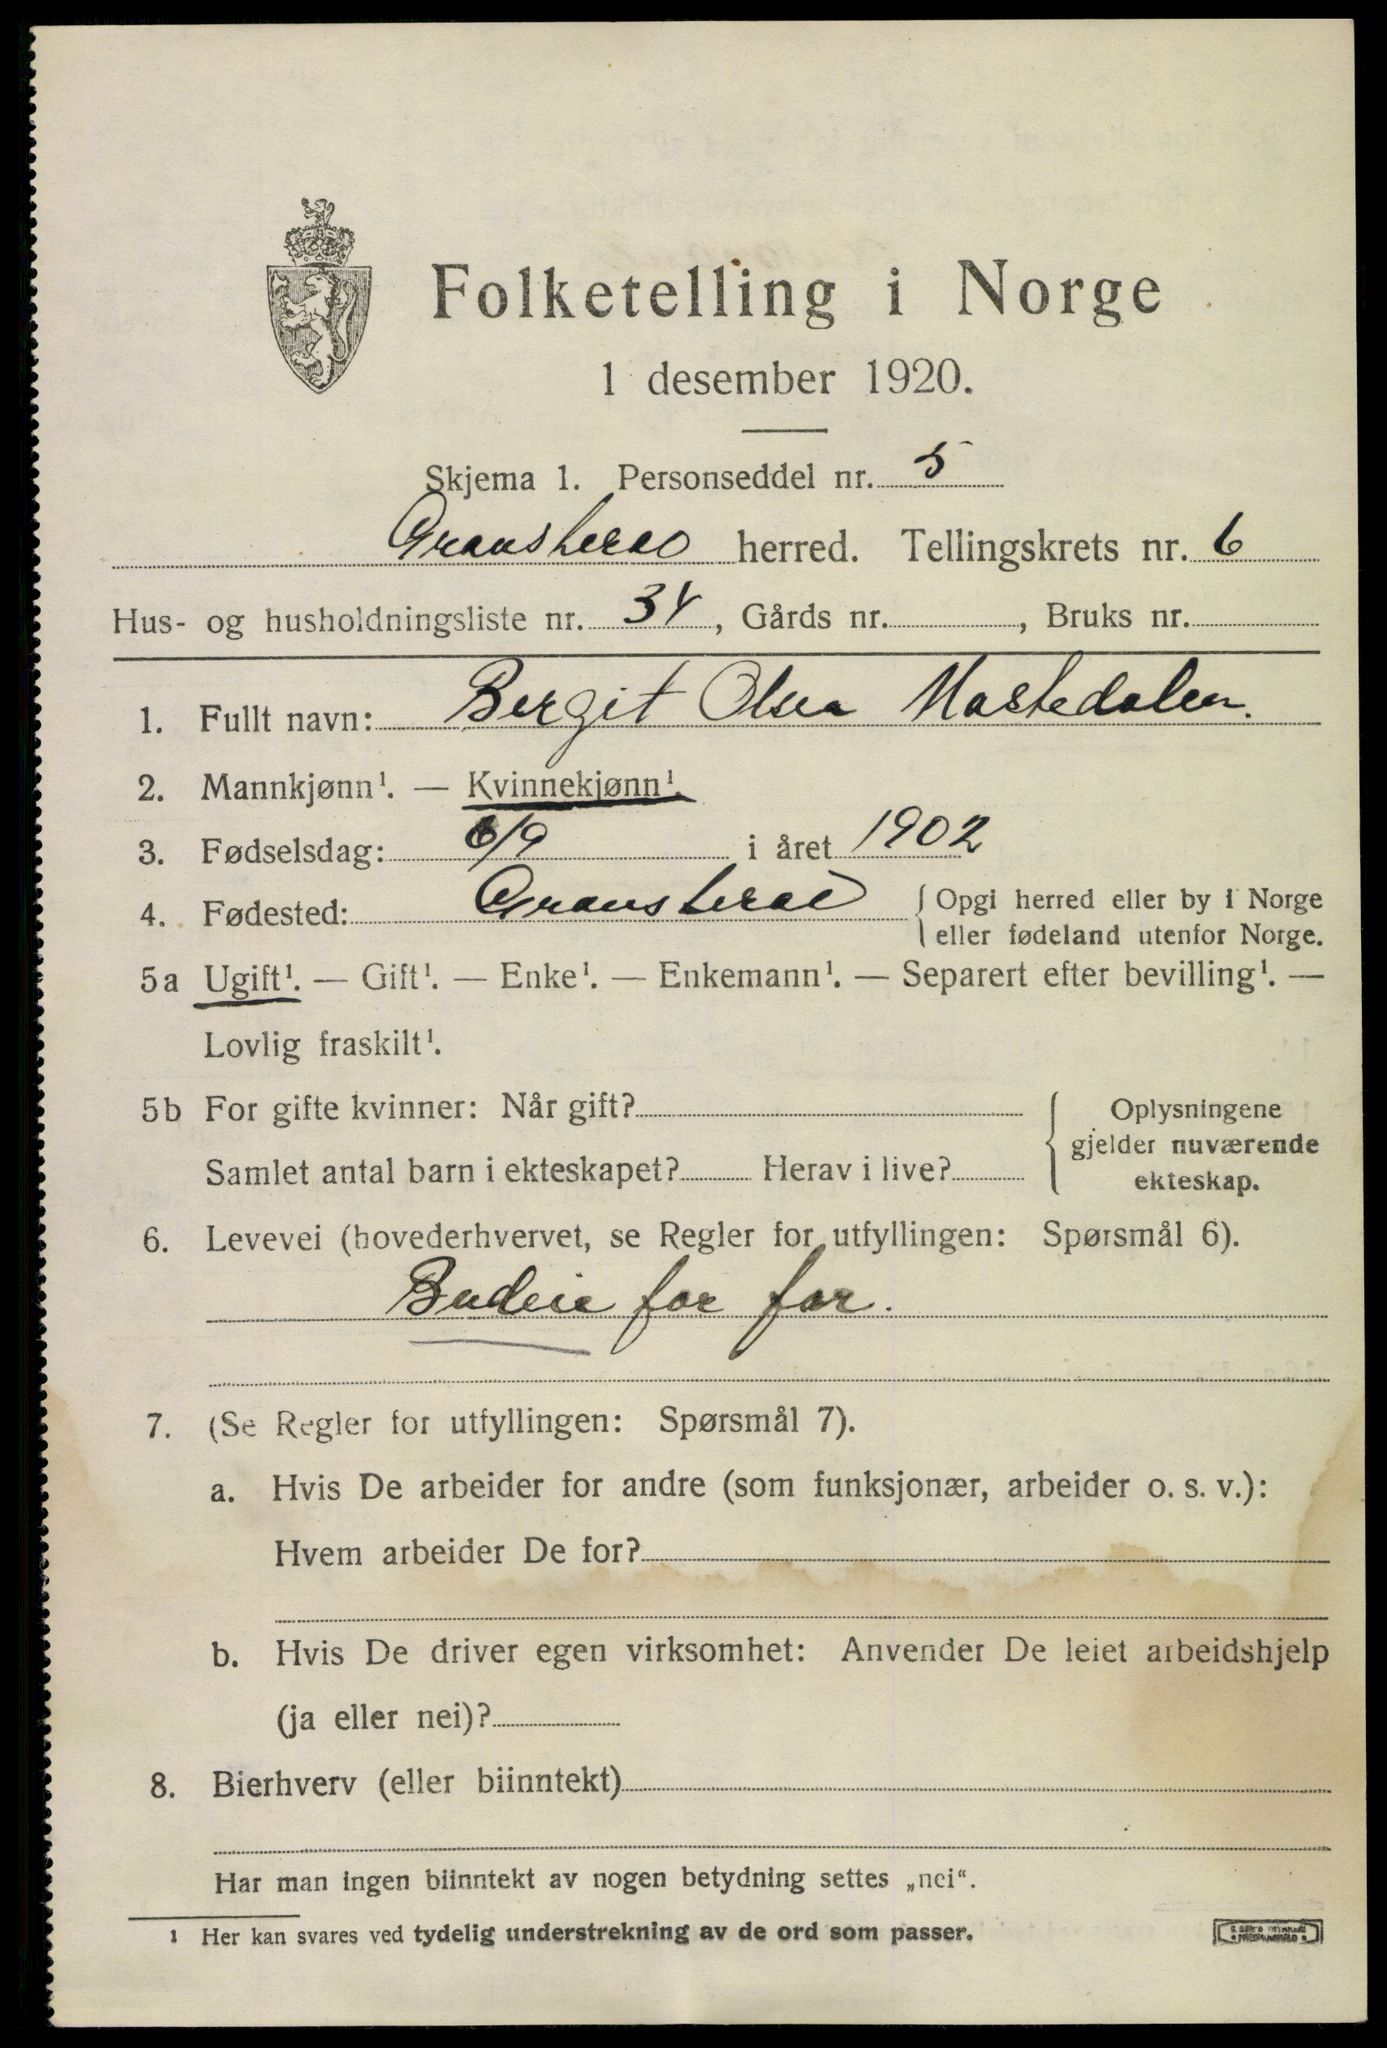 Folketelling i Norge
1 desember 1920.
Skjema 1. Personseddel nr. 5
Gransherad herred. Tellingskrets nr. 6
Hus- og husholdningsliste nr. 34, Gårds nr. , Bruks nr.
1. Fullt navn: Bergit Olsen Mostedalen.
2. Mannkjønn¹. — Kvinnekjønn¹.
3. Fødselsdag: 6/9 i året 1902
4. Fødested: Gransherad { Opgi herred eller by i Norge
eller fødeland utenfor Norge.
5a Ugift¹. — Gift¹. — Enke¹. — Enkemann¹. — Separert efter bevilling¹. —
Lovlig fraskilt¹.
5b For gifte kvinner: Når gift? { Oplysningene
gjelder nuværende
Samlet antal barn i ekteskapet? Herav i live?
ekteskap.
6. Levevei (hovederhvervet, se Regler for utfyllingen: Spørsmål 6).
Budeie for far.
7. (Se Regler for utfyllingen: Spørsmål 7).
a. Hvis De arbeider for andre (som funksjonær, arbeider o. s. v.):
Hvem arbeider De for?
b. Hvis De driver egen virksomhet: Anvender De leiet arbeidshjelp
(ja eller nei)?
8. Bierhverv (eller biinntekt)
Har man ingen biinntekt av nogen betydning settes „nei“.
¹ Her kan svares ved tydelig understrekning av de ord som passer.